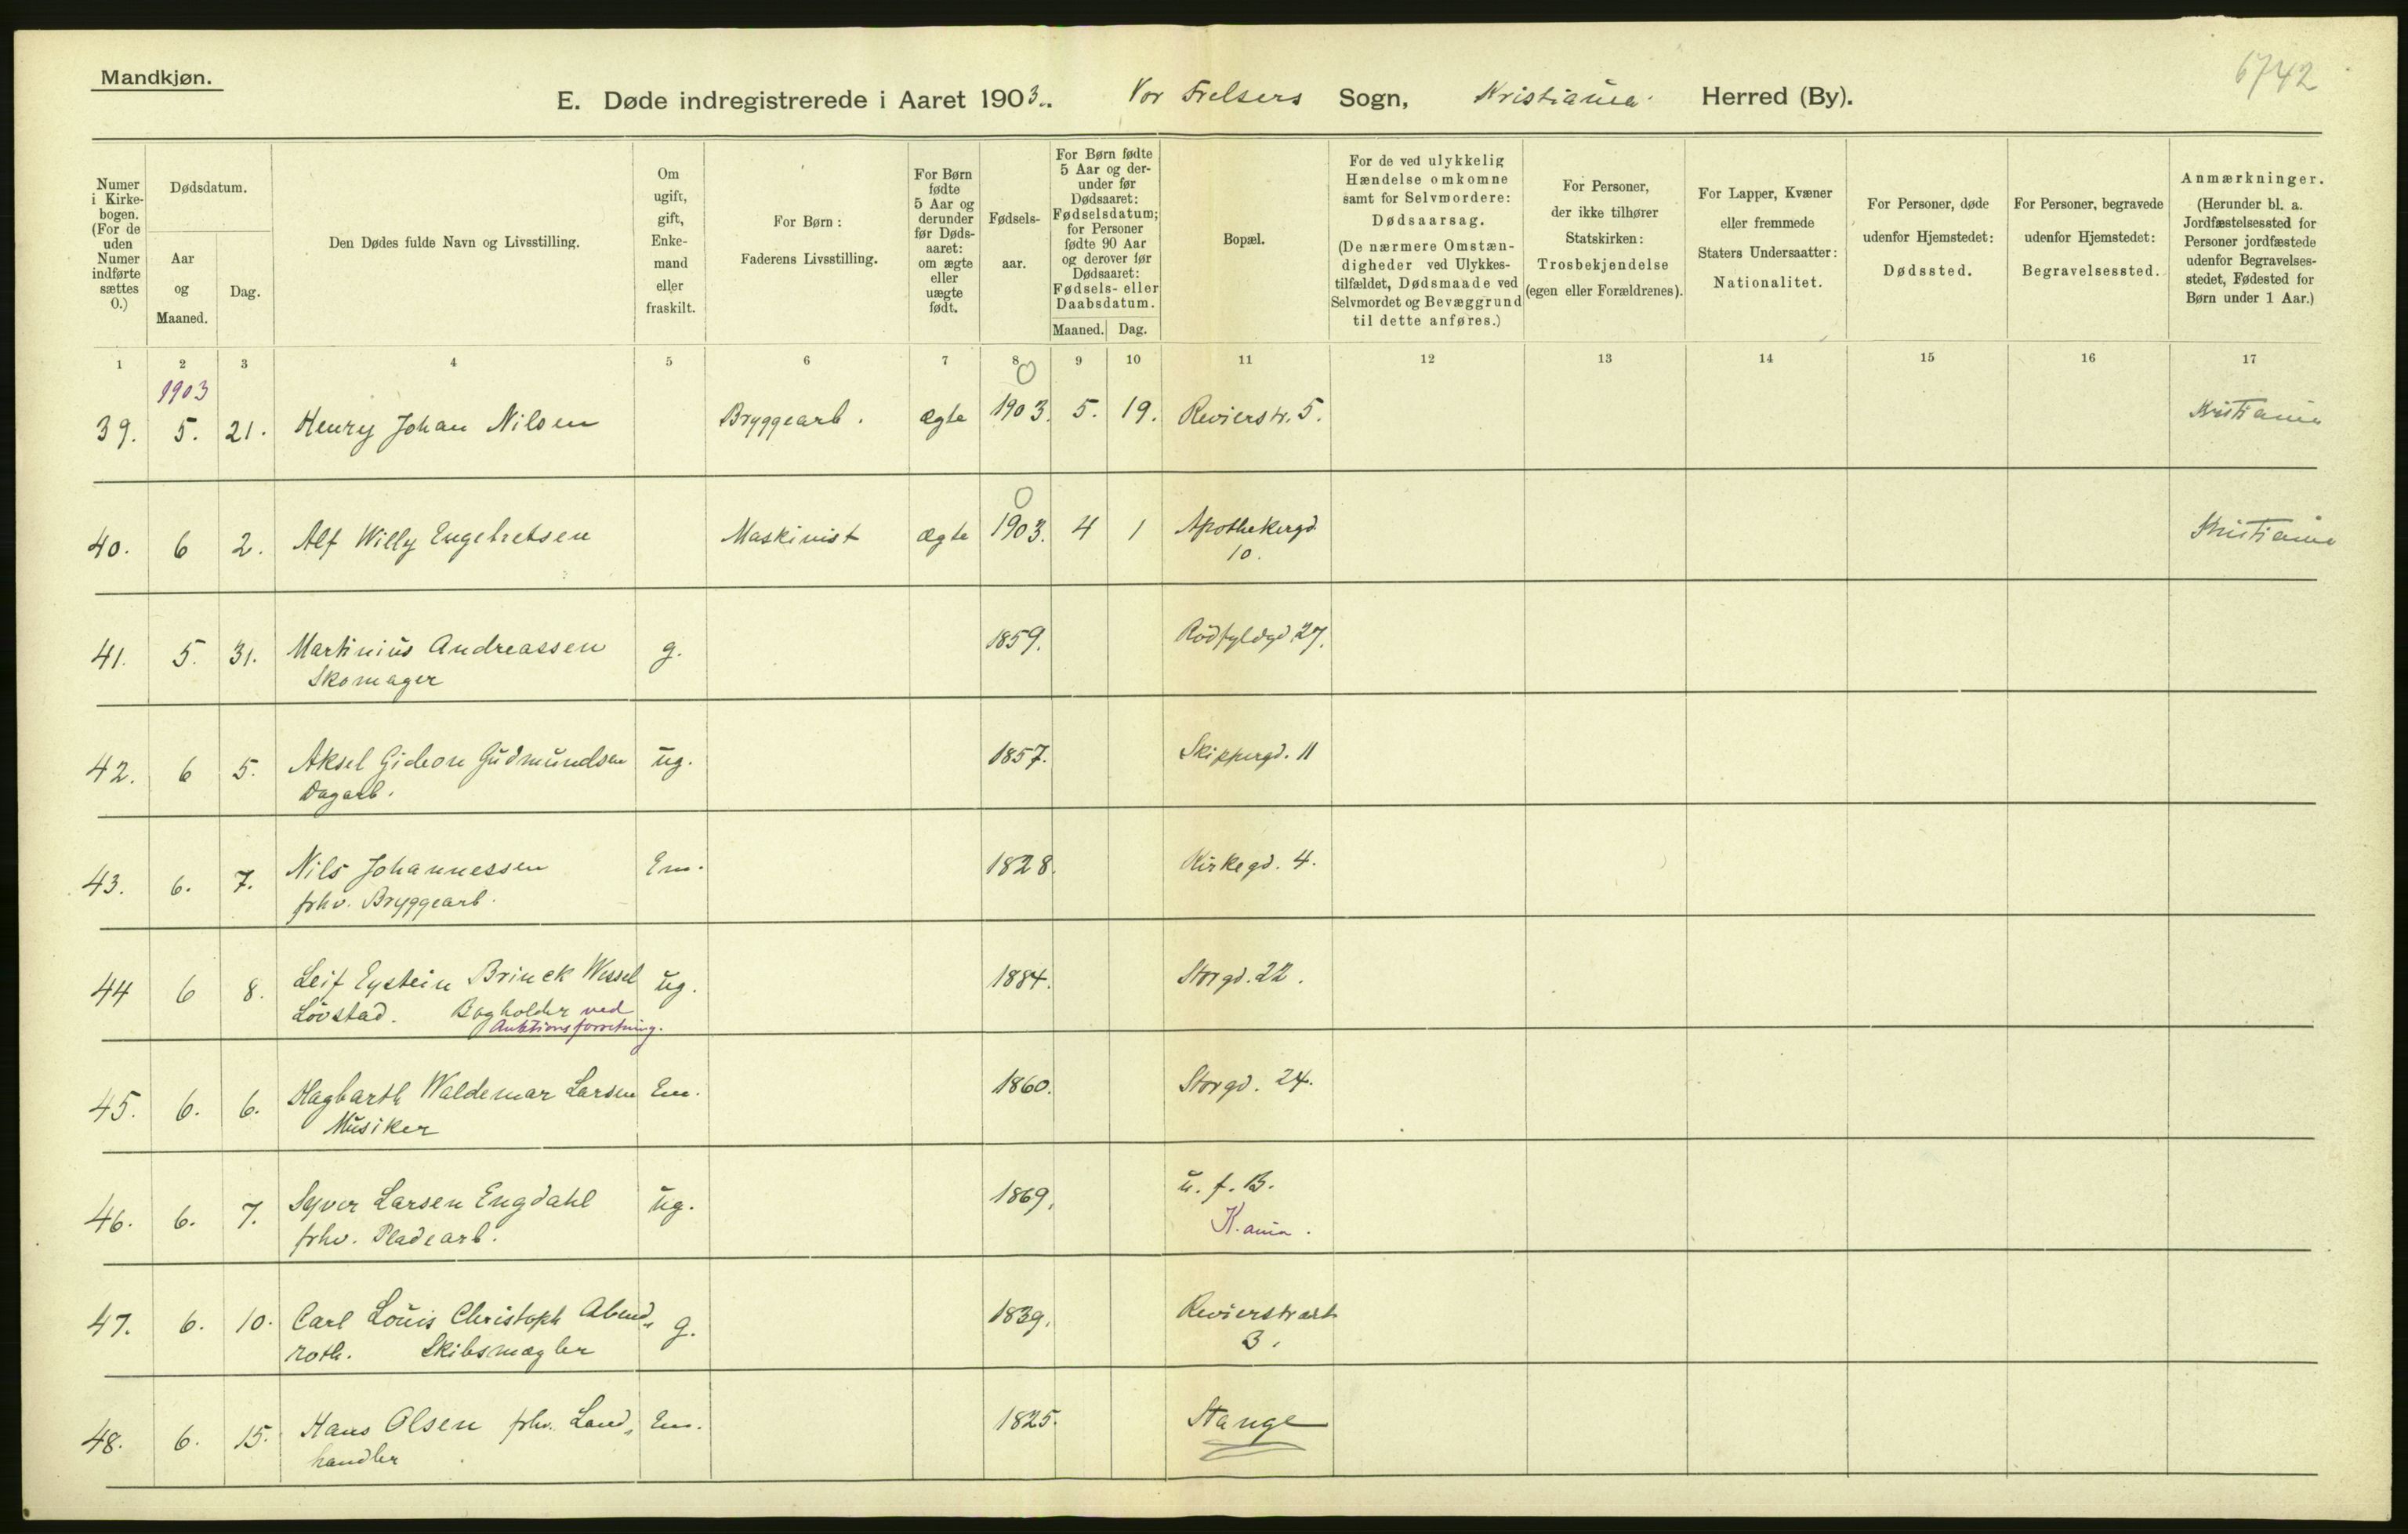 Mandkjøn.
6742
E. Døde indregistrerede i Aaret 1903. Vor Frelsers Sogn, Kristiania Herred (By).
Numer i Kirkebogen. (For de uden Numer indførte sættes 0.)
Dødsdatum.
Aar og Maaned.
Dag.
Den Dødes fulde Navn og Livsstilling.
Om ugift, gift, Enkemand eller fraskilt.
For Børn: Faderens Livsstilling.
For Børn fødte 5 Aar og derunder før Dødsaaret: om ægte eller uægte født.
Fødselsaar.
For Børn fødte 5 Aar og derunder før Dødsaaret: Fødselsdatum; for Personer fødte 90 Aar og derover før Dødsaaret: Fødsels- eller Daabsdatum.
Maaned. Dag.
Bopæl.
For de ved ulykkelig Hændelse omkomne samt for Selvmordere: Dødsaarsag. (De nærmere Omstændigheder ved Ulykkestilfældet, Dødsmaade ved Selvmordet og Bevæggrund til dette anføres.)
For Personer, der ikke tilhører Statskirken: Trosbekjendelse (egen eller Forældrenes).
For Lapper, Kvæner eller fremmede Staters Undersaatter: Nationalitet.
For Personer, døde udenfor Hjemstedet: Dødssted.
For Personer, begravede udenfor Hjemstedet: Begravelsessted.
Anmærkninger. (Herunder bl. a. Jordfæstelsessted for Personer jordfæstede udenfor Begravelsesstedet, Fødested for Børn under 1 Aar.)
1 2 3 4 5 6 7 8 9 10 11 12 13 14 15 16 17
1903 0
39. 5. 21. Henry Johan Nilsen Bryggearb. ægte 1903. 5. 19. Revierstr. 5. Kristiania
0
40. 6 2. Alf Willy Engebretsen Maskinist ægte 1903. 4 1 Apothekergd. Kristiania
10.
41. 5. 31. Martinius Andreassen g. 1859. Rödfyldgd 27.
Skomager
42. 6 5. Aksel Gideon Gudmundsen ug. 1857. Skippergd. 11
Dagarb.
43. 6. 7. Nils Johannessen Em. 1828. Kirkegd. 4.
fhv. Bryggearb.
44 6 8. Leif Eystein Brinck Wessel ug. 1884. Storgd. 22.
Lövstad. Bogholder ved
Auktionsforretning.
45. 6. 6. Hagbarth Waldemar Larsen Em. 1860. Storgd. 24.
Musiker
46. 6. 7. Syver Larsen Engdahl ug. 1869. u. f. B.
fhv. Pladearb. K.ania.
47. 6. 10. Carl Louis Christoph Abend- g. 1839. Revierstræt
roth. Skibsmægler 3.
48. 6. 15. Hans Olsen fhv. Land- Em. 1825. Stange
handler